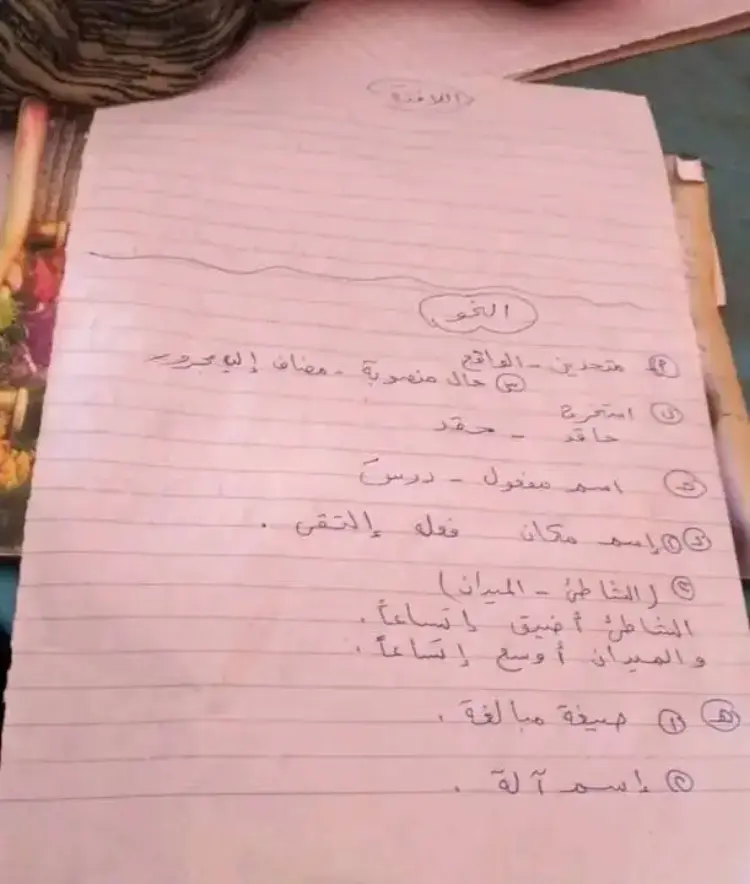 اللافتة
النحو
(٢) متحدين - الواقع
(٣) حال منصوبة - مضاف إليه مجرور
(ب) استخرج
حاقد - حقد
(ج) اسم مفعول - درسَ
(د) (١) إسم مكان فعله إلتقى .
(٢) (الشاطئ - الميدان)
الشاطئ أضيق إتساعاً .
والميدان أوسع إتساعاً .
(هـ) (١) صيغة مبالغة .
(٢) إسم آلة .